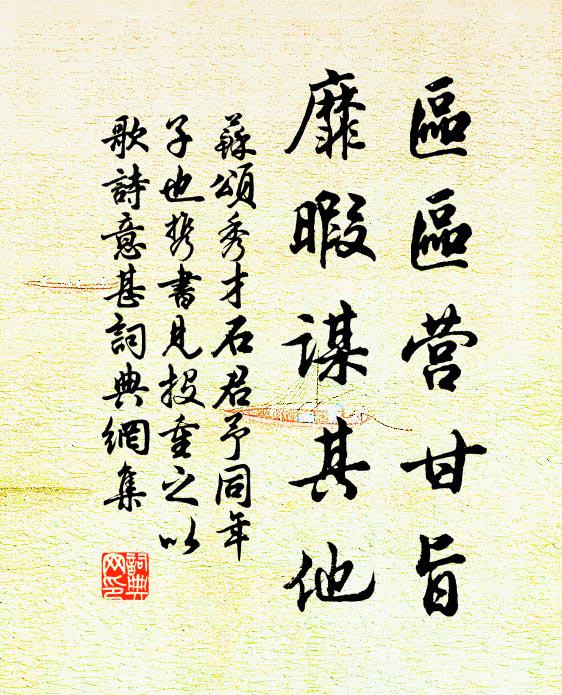 區區营甘旨
靡暇謀其他
蘇頌秀才石君予同年
子也携書見投重之以
歌詩意甚詞典網集
詞典网印